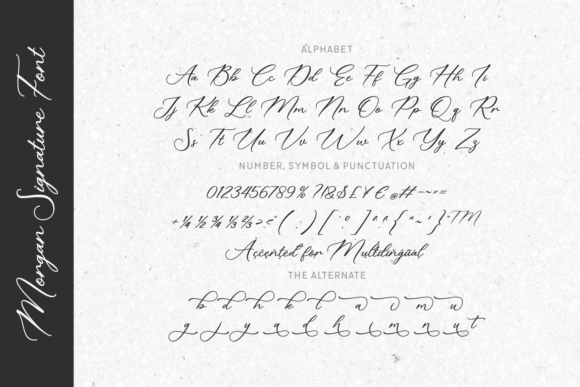 Morgan Signature Font
ALPHABET
Aa Bb Cc Dd Ee Ff Gg Hh Ii
Jj Kk Ll Mm Nn Oo Pp Qq Rr
Ss Tt Uu Vv Ww Xx Yy Zz
NUMBER, SYMBOL & PUNCTUATION
0123456789% ?!&$£¥€@#-~×=
+¼½¾⅓⅔><:(.)['°]^"{"~'}-TM
Accented for Multilingual
THE ALTERNATE
b d h k l a i m u
g j y a d h i m n u t